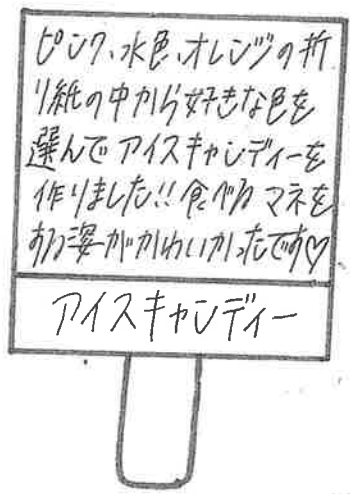 ピンク、水色、オレンジの折
り紙の中から好きな色を
選んでアイスキャンディーを
作りました!!食べる マネを
する姿がかわいかったです♡
アイスキャンディー